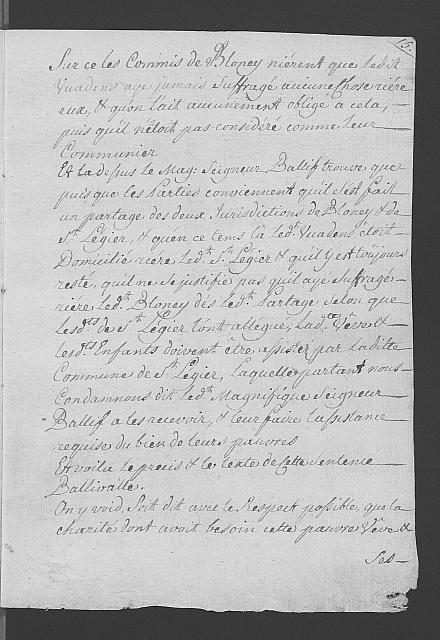 5.
Sur ce les Commis de Bloney niérent que ledit
Vuadens aye jamais Suffragé aucune Chose riére
eux, & qu'on l'ait aucunement obligé a cela,
puis qu'il n'étoit pas considéré comme leur
Communier
Et la dessus le Mag: Seigneur Ballif trouve que
puis que les Parties conviennent qu'il s'est fait
un partage des deux Jurisdictions de Bloney & de
St. Légier, & qu'en ce tems la led. Vuadens étoit
Domicilié riére led.t St. Légier & qu'il y est toûjours
resté, qu'il ne se justifie pas qu'il aye Suffragé
riére led.t Bloney dès led.t Partage Selon que
lesd.rs de St. Légier l'ont allégué, lad.te Vêve &
lesd.rs Enfants doivent être assistez par la dite
Commune de St. Légier, laquelle partant nous
Condamnons dit led.t Magnifique Seigneur
Ballif a les recevoir, & leur faire l'assistance
requise du bien de leurs pauvres
Et voila le précis & le texte de Cette Sentence
Ballivalle.
On y void, Soit dit avec le Respect possible, que la
charité dont avoit besoin cette pauvre Vêve &
Ses